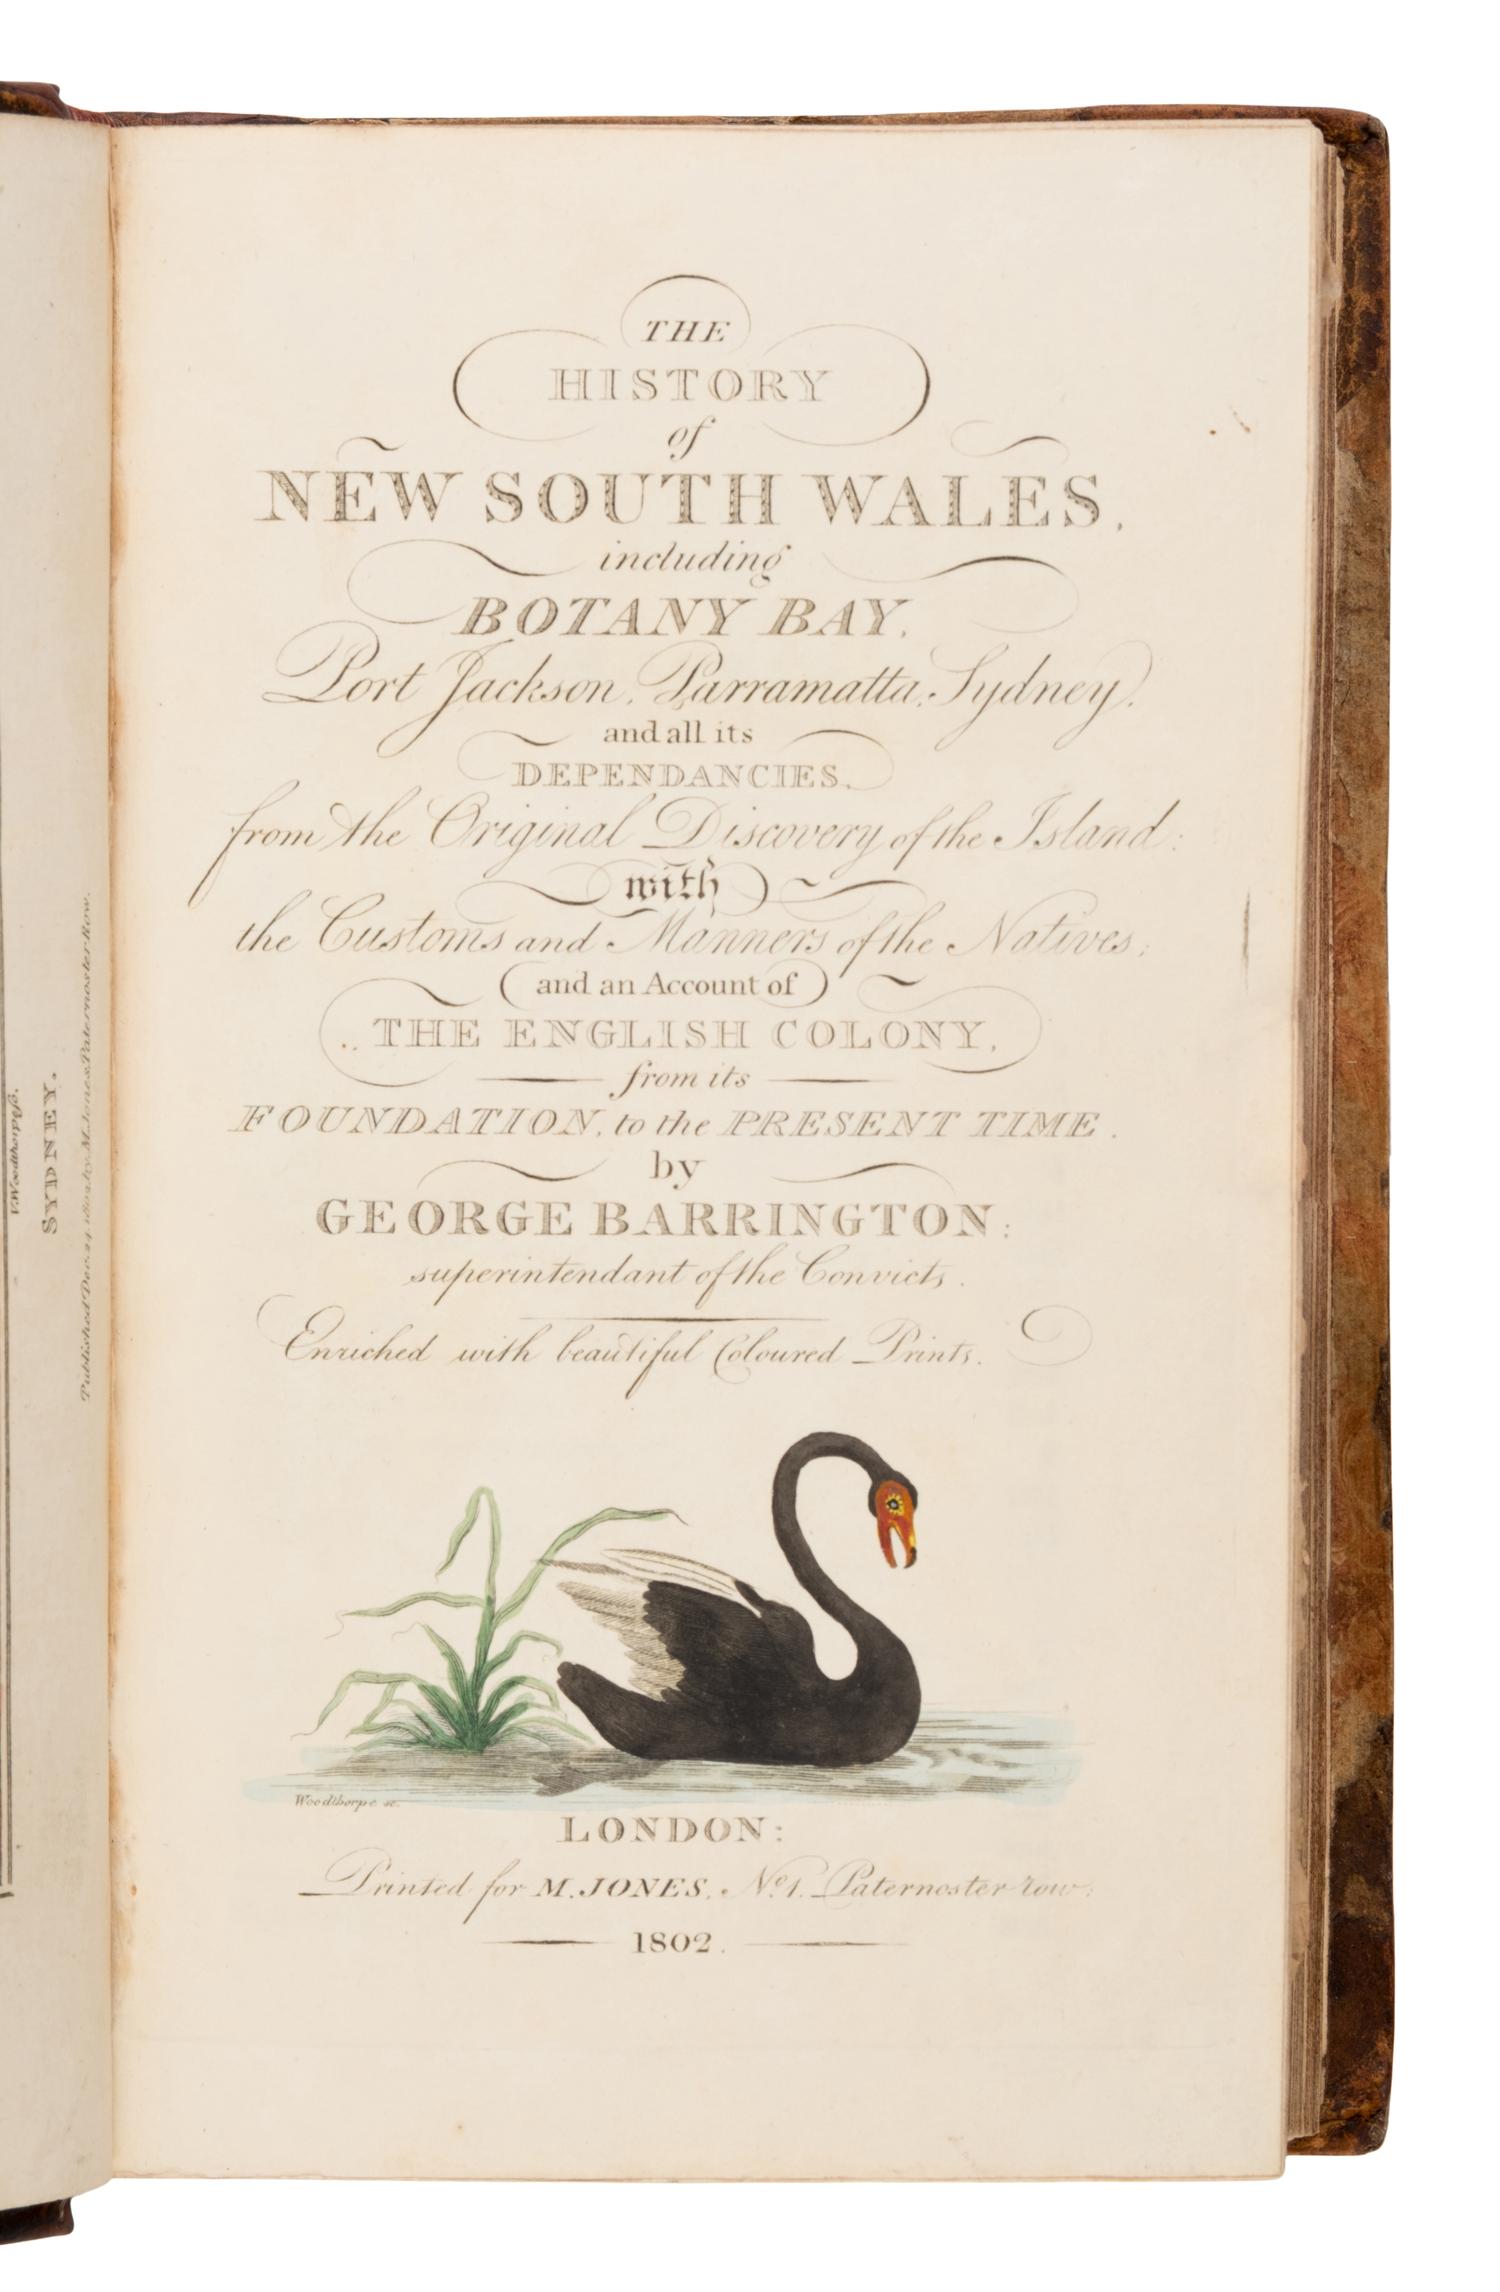 V. Woodthorpe sc.
SYDNEY.
Published Dec. 24, 1802, by M. Jones, Paternoster Row.
THE
HISTORY
of
NEW SOUTH WALES,
including
BOTANY BAY,
Port Jackson, Parramatta, Sydney,
and all its
DEPENDANCIES,
from the Original Discovery of the Island:
with
the Customs and Manners of the Natives;
and an Account of
THE ENGLISH COLONY,
from its
FOUNDATION, to the PRESENT TIME.
by
GEORGE BARRINGTON;
superintendant of the Convicts.
Enriched with beautiful Coloured Prints.
Woodthorpe sc.
LONDON:
Printed for M. JONES, No. 1, Paternoster row;
1802.